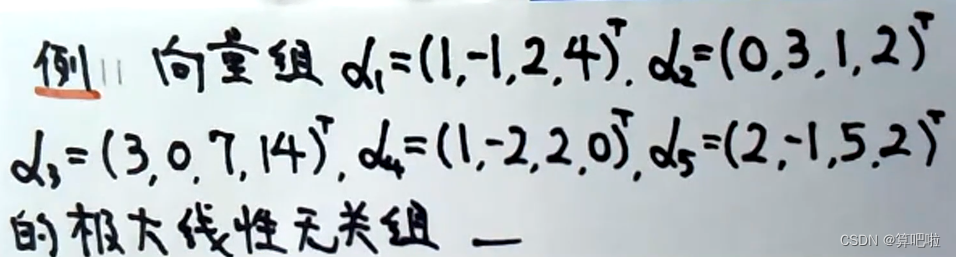 例11 向量组 α₁=(1,-1,2,4)ᵀ, α₂=(0,3,1,2)ᵀ
α₃=(3,0,7,14)ᵀ, α₄=(1,-2,2,0)ᵀ, α₅=(2,-1,5,2)ᵀ
的极大线性无关组 __
CSDN @算吧啦